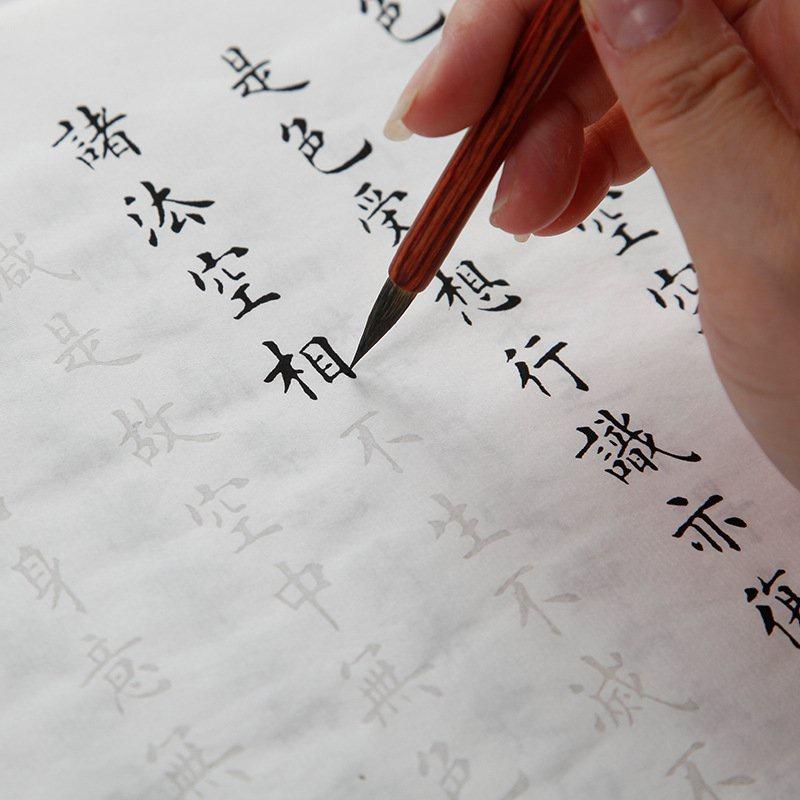 色空空
是色受想行識亦復
諸法空相不生不滅不
減是故空中無色
身意無